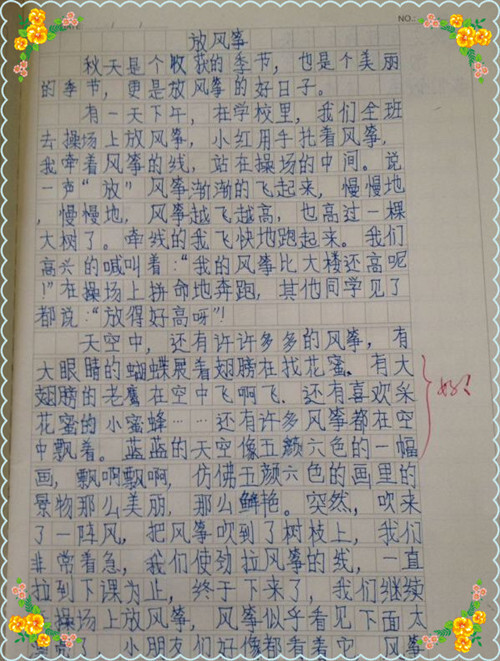 NO.:
放风筝
秋天是个收获的季节，也是个美丽
的季节，更是放风筝的好日子。
有一天下午，在学校里，我们全班
去操场上放风筝，小红用手扎着风筝，
我牵着风筝的线，站在操场的中间。说
一声“放”风筝渐渐的飞起来，慢慢地
，慢慢地，风筝越飞越高，也高过一棵
大树了。牵线的我飞快地跑起来。我们
高兴的喊叫着：“我的风筝比大楼还高呢
！”在操场上拼命地奔跑，其他同学见了
都说：“放得好高呀”！
天空中，还有许许多多的风筝，有
大眼睛的蝴蝶展着翅膀在找花蜜。有大
翅膀的老鹰在空中飞啊飞。还有喜欢采
花蜜的小蜜蜂……还有许多风筝都在空
中飘着。蓝蓝的天空像五颜六色的一幅
好！
画，飘啊飘啊，仿佛五颜六色的画里的
景物那么美丽，那么鲜艳。突然，吹来
了一阵风，把风筝吹到了树枝上，我们
非常着急，我们使劲拉风筝的线，一直
拉到下课为止，终于下来了，我们继续
操场上放风筝，风筝似乎看见下面太
了，小朋友们好像都看着它，风筝